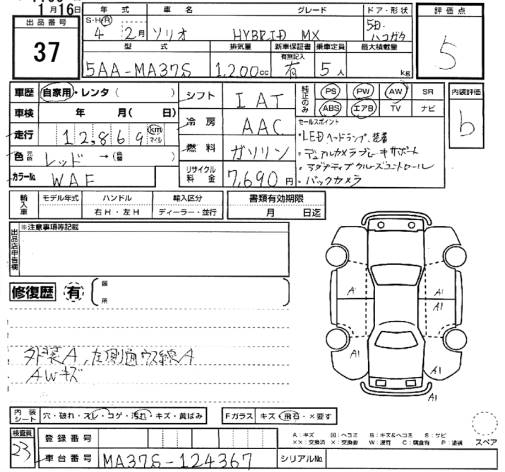 1月16日
年式 車名 グレード ドア・形状 評価点
出品番号
37
S・H・R 4年 2月 ソリオ HYBRID MX 5D ハコガタ
5
型式 排気量 新車保証書 有無記入 乗車定員 最大積載量
5AA-MA37S 1,200cc 有 5人 kg
車歴 自家用・レンタ( ) シフト IAT 純正のみ PS PW AW SR 内装評価
ABS エアB TV ナビ
b
車検 年 月(日) 冷房 AAC
セールスポイント
・LEDヘッドランプ、装着
走行 12,869 km マイル 燃料 ガソリン
・デュアルカメラブレーキサポート
色 元色 レッド →(替)
・アダプティブクルーズコントロール
カラーNo. WAF リサイクル料金 7,690円
・バックカメラ
輸入車 モデル年式 ハンドル 輸入区分 書類有効期限
年 右H・左H ディーラー・並行 月 日迄
出品店申告欄 ※注意事項等記載
修復歴 有 (箇所 )
A A1
A1 A1
A1 A1
外装A,左側面ウス線A
AWキズ
内装シート 穴・破れ・スレ・コゲ・汚れ・キズ・黄ばみ Fガラス キズ・飛石・×要す
スペア
検査員 23
登録番号
A:キズ U:ヘコミ B:キズ&ヘコミ S:サビ
××:交換済 ×:交換要 W:波可 C:腐食有 P:塗装
車台番号 MA37S-124367 シリアルNo.